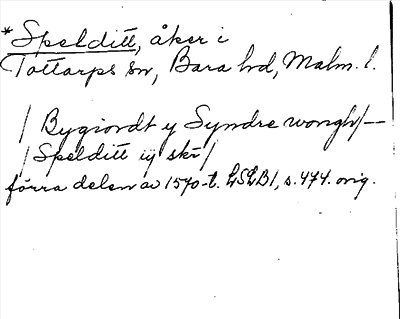 *Spelditt, åker i
Tottarps sn, Bara hd, Malm. l.
/ Bygiordt y Syndre wongh/—
/ Spelditt iij skr/
förra delen av 1570-t. LSLB1, s. 474. orig.